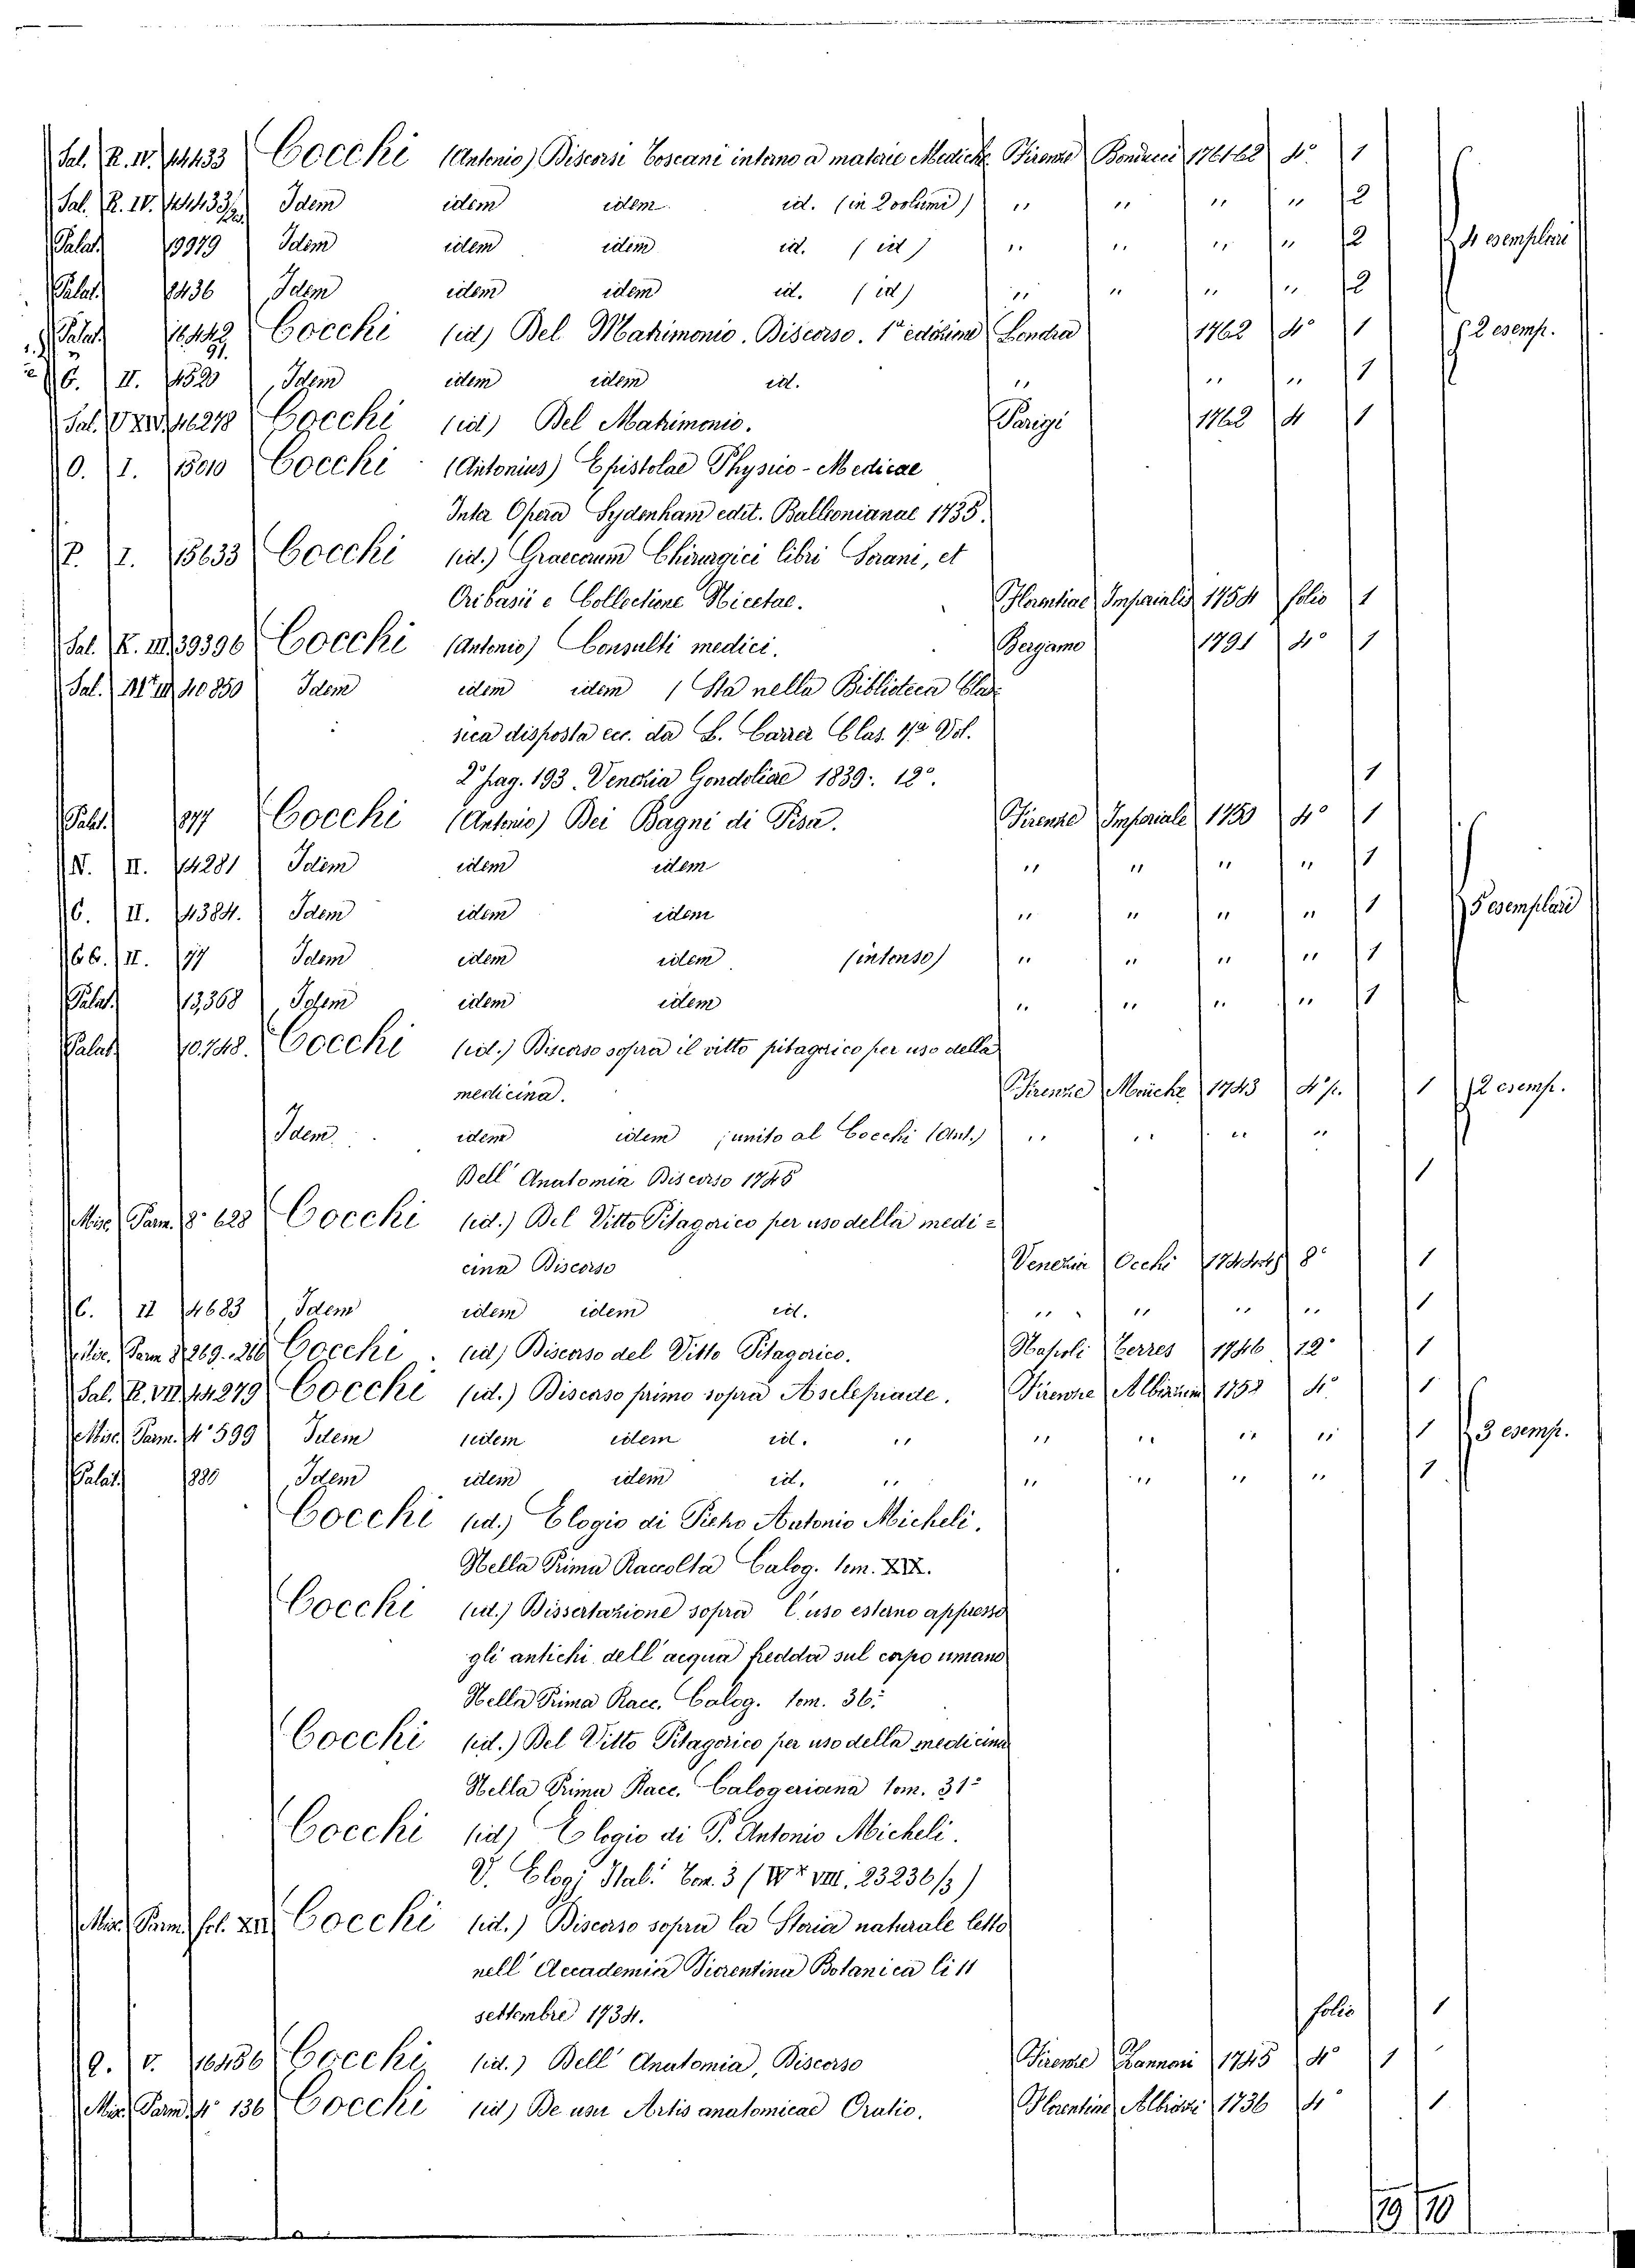 Sal. R. IV. 44433 Cocchi (Antonio) Discorsi Toscani intorno a materie Mediche Firenze Bonducci 1761-62 4° 1
Sal. R. IV. Idem idem idem id. (in 2 volumi) " " " " 2
Palat. 19979 Idem idem idem id. (id) " " " " 2 4 esemplari
Palat. 8436 Idem idem idem id. (id) " " " " 2
Palat. Cocchi (id) Del Matrimonio. Discorso. 1ª edizione Londra 1762 4° 1 2 esemp.
C. II. 4520 Idem idem idem id. " " " 1
Sal. V XIV. 46278 Cocchi (id) Del Matrimonio. Parigi 1762 4 1
O. I. 15010 Cocchi (Antonius) Epistolae Physico-Medicae
Inter Opera Sydenham edit. 1735.
P. I. 15633 Cocchi (id.) Graecorum Chirurgici libri Sorani, et
Oribasii e Collectione Nicetae. Florentiae Imperialis 1754 folio 1
Sal. K. III. 39396 Cocchi (Antonio) Consulti medici. Bergamo 1791 4° 1
Sal. 40850 Idem idem idem (Sta nella Biblioteca Clas=
sica disposta ecc. da L. Carrer Clas. Vol.
2° pag. 193. Venezia Gondoliere 1839. 12°. 1
Palat. 877 Cocchi (Antonio) Dei Bagni di Pisa. Firenze Imperiale 1750 4° 1
N. II. 14281 Idem idem idem " " " " 1
C. II. 4384. Idem idem idem " " " " 1 5 esemplari
CC. II. 77 Idem idem idem (intonso) " " " " 1
Palat. 13,368 Idem idem idem " " " " 1
Palat. 10.748. Cocchi (id.) Discorso sopra il vitto pitagorico per uso della
medicina. Firenze Moücke 1743 4° p. 1 2 esemp.
Idem idem idem (unito al Cocchi (Ant.) " " " "
Dell' Anatomia Discorso 1745 1
Misc. Parm. 8° 628 Cocchi (id.) Del Vitto Pitagorico per uso della medi=
cina Discorso Venezia Occhi 1744 8° 1
C. II 4683 Idem idem idem id. " " " " 1
Misc. Parm. Cocchi (id) Discorso del Vitto Pitagorico. Napoli Terres 1746 12° 1
Sal. R. VII. 44279 Cocchi (id.) Discorso primo sopra Asclepiade. Firenze Albizzini 1758 4° 1
Misc. Parm. 4° 599 Idem idem idem id. " " " " " 1 3 esemp.
Palat. 880 Idem idem idem id. " " " " " 1
Cocchi (id.) Elogio di Pietro Antonio Micheli.
Nella Prima Raccolta Calog. tom. XIX.
Cocchi (id.) Dissertazione sopra l'uso esterno appresso
gli antichi dell'acqua fredda sul corpo umano
Nella Prima Racc. Calog. tom. 36.
Cocchi (id.) Del Vitto Pitagorico per uso della medicina
Nella Prima Racc. Calogeriana tom. 31°
Cocchi (id) Elogio di P. Antonio Micheli.
V. Elogj Ital. Tom. 3 (VIII. 23236/3)
Misc. Parm. fol. XII. Cocchi (id.) Discorso sopra la Storia naturale letto
nell' Accademia Fiorentina Botanica li 11
settembre 1734. folio 1
Q. V. 16456 Cocchi (id.) Dell' Anatomia, Discorso Firenze Zannoni 1745 4° 1
Misc. Parm. 4° 136 Cocchi (id) De usu Artis anatomicae Oratio. Florentiae Albizzi 1736 4° 1
19 10